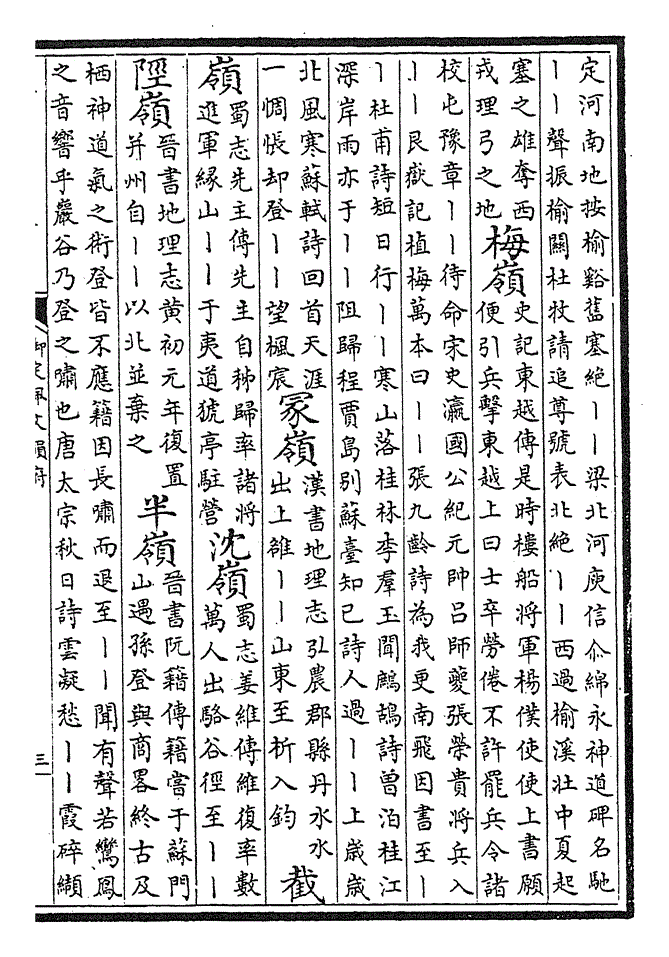 定河南地按榆谿舊塞絶丨丨梁北河庾信尒綿永神道碑名馳
丨丨聲振榆關杜牧請追尊號表北絶丨丨西過榆溪壯中夏起
塞之雄奪西
戎理弓之地
梅嶺
史記東越傳是時樓船將軍楊僕使使上書願
便引兵擊東越上曰士卒勞倦不許罷兵令諸
校屯豫章丨丨待命宋史瀛國公紀元帥呂師夔張榮貴將兵入
丨丨艮嶽記植梅萬本曰丨丨張九齡詩為我更南飛因書至丨
丨杜甫詩短日行丨丨寒山落桂林李羣玉聞鷓鴣詩曾泊桂江
深岸雨亦于丨丨阻歸程賈島别蘇臺知己詩人過丨丨上歲歲
北風寒蘇軾詩回首天涯
一惆悵却登丨丨望楓宸
冢嶺
漢書地理志弘農郡縣丹水水
出上雒丨丨山東至析入鈞
截
嶺
蜀志先主傳先主自秭歸率諸將
進軍緣山丨丨于夷道猇亭駐營
沈嶺
蜀志姜維傳維復率數
萬人出駱谷徑至丨丨
陘嶺
晉書地理志黄初元年復置
并州自丨丨以北並棄之
半嶺
晉書阮籍傳籍嘗于蘇門
山遇孫登與商畧終古及
栖神道氣之術登皆不應籍因長嘯而退至丨丨聞有聲若鸞鳳
之音響乎巖谷乃登之嘯也唐太宗秋日詩雲凝愁丨丨霞碎纈
御定佩文韻府
三